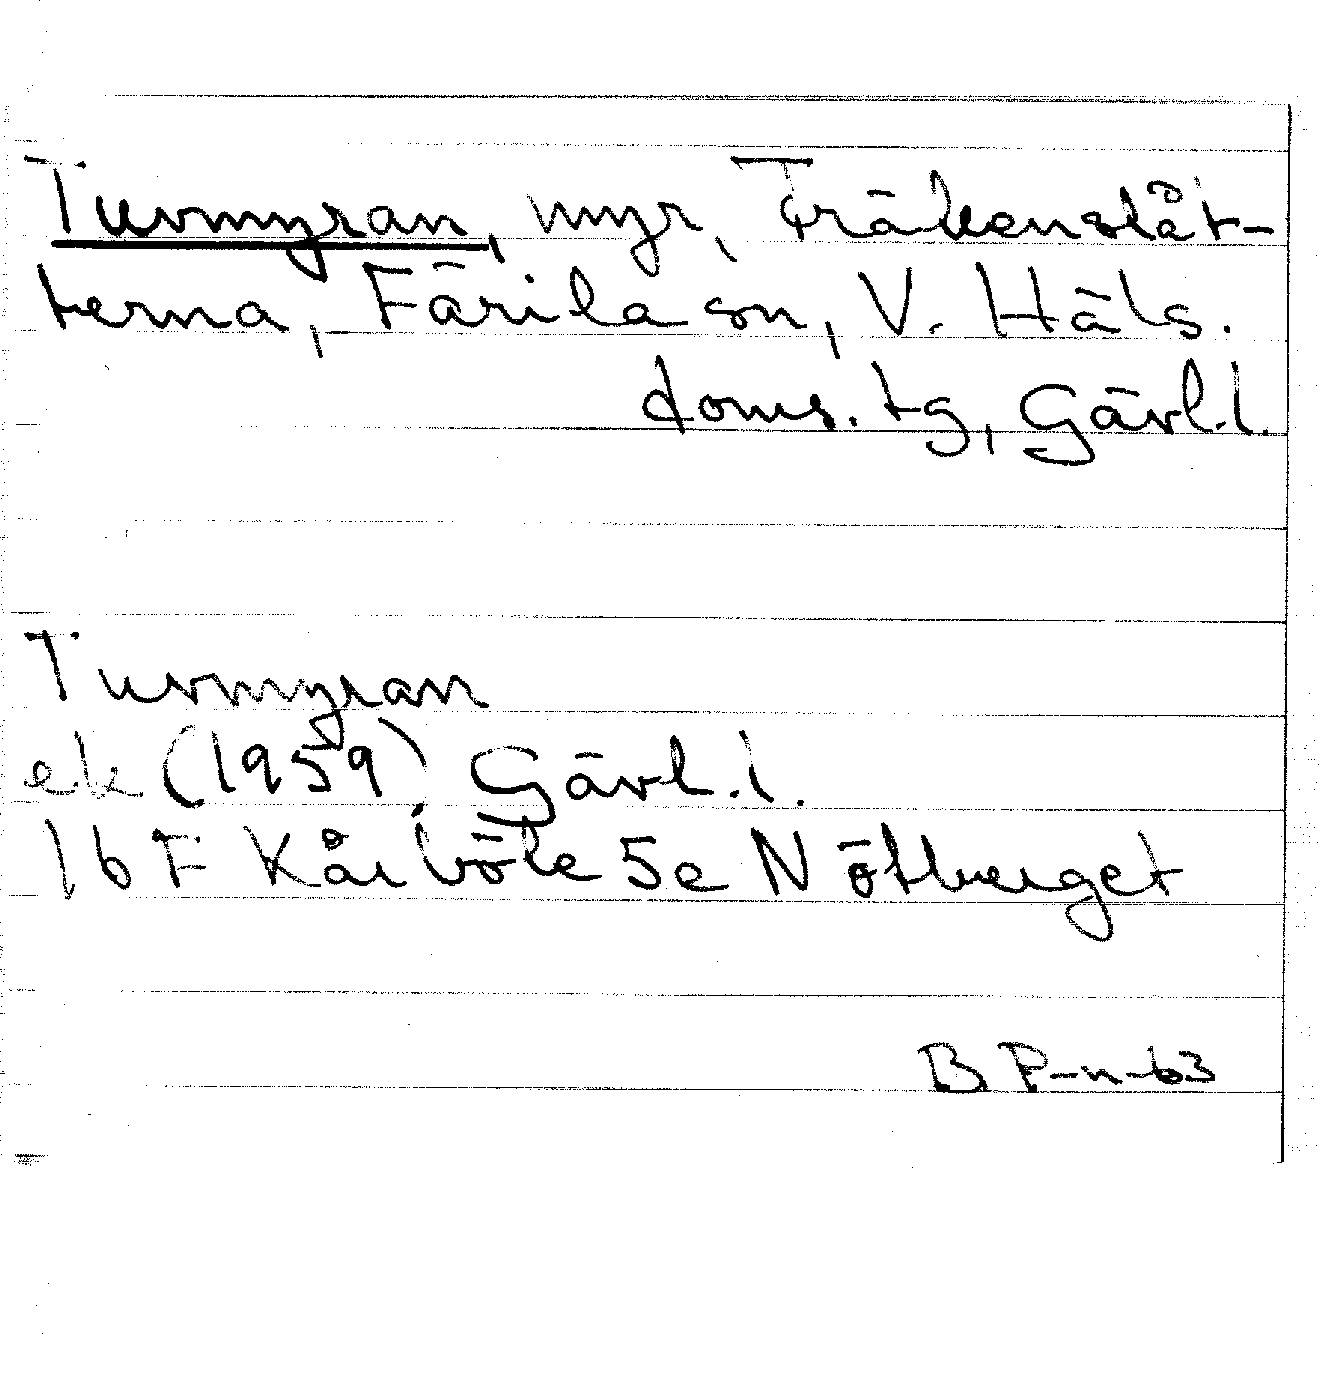 Tuvmyran, myr, Fräkenslåt-
terna, Färila sn, V. Häls.
doms. tg, Gävl.l.
Tuvmyran
ek (1959), Gävl.l.
16 F Kårböle 5e Nötberget
B P-n-63